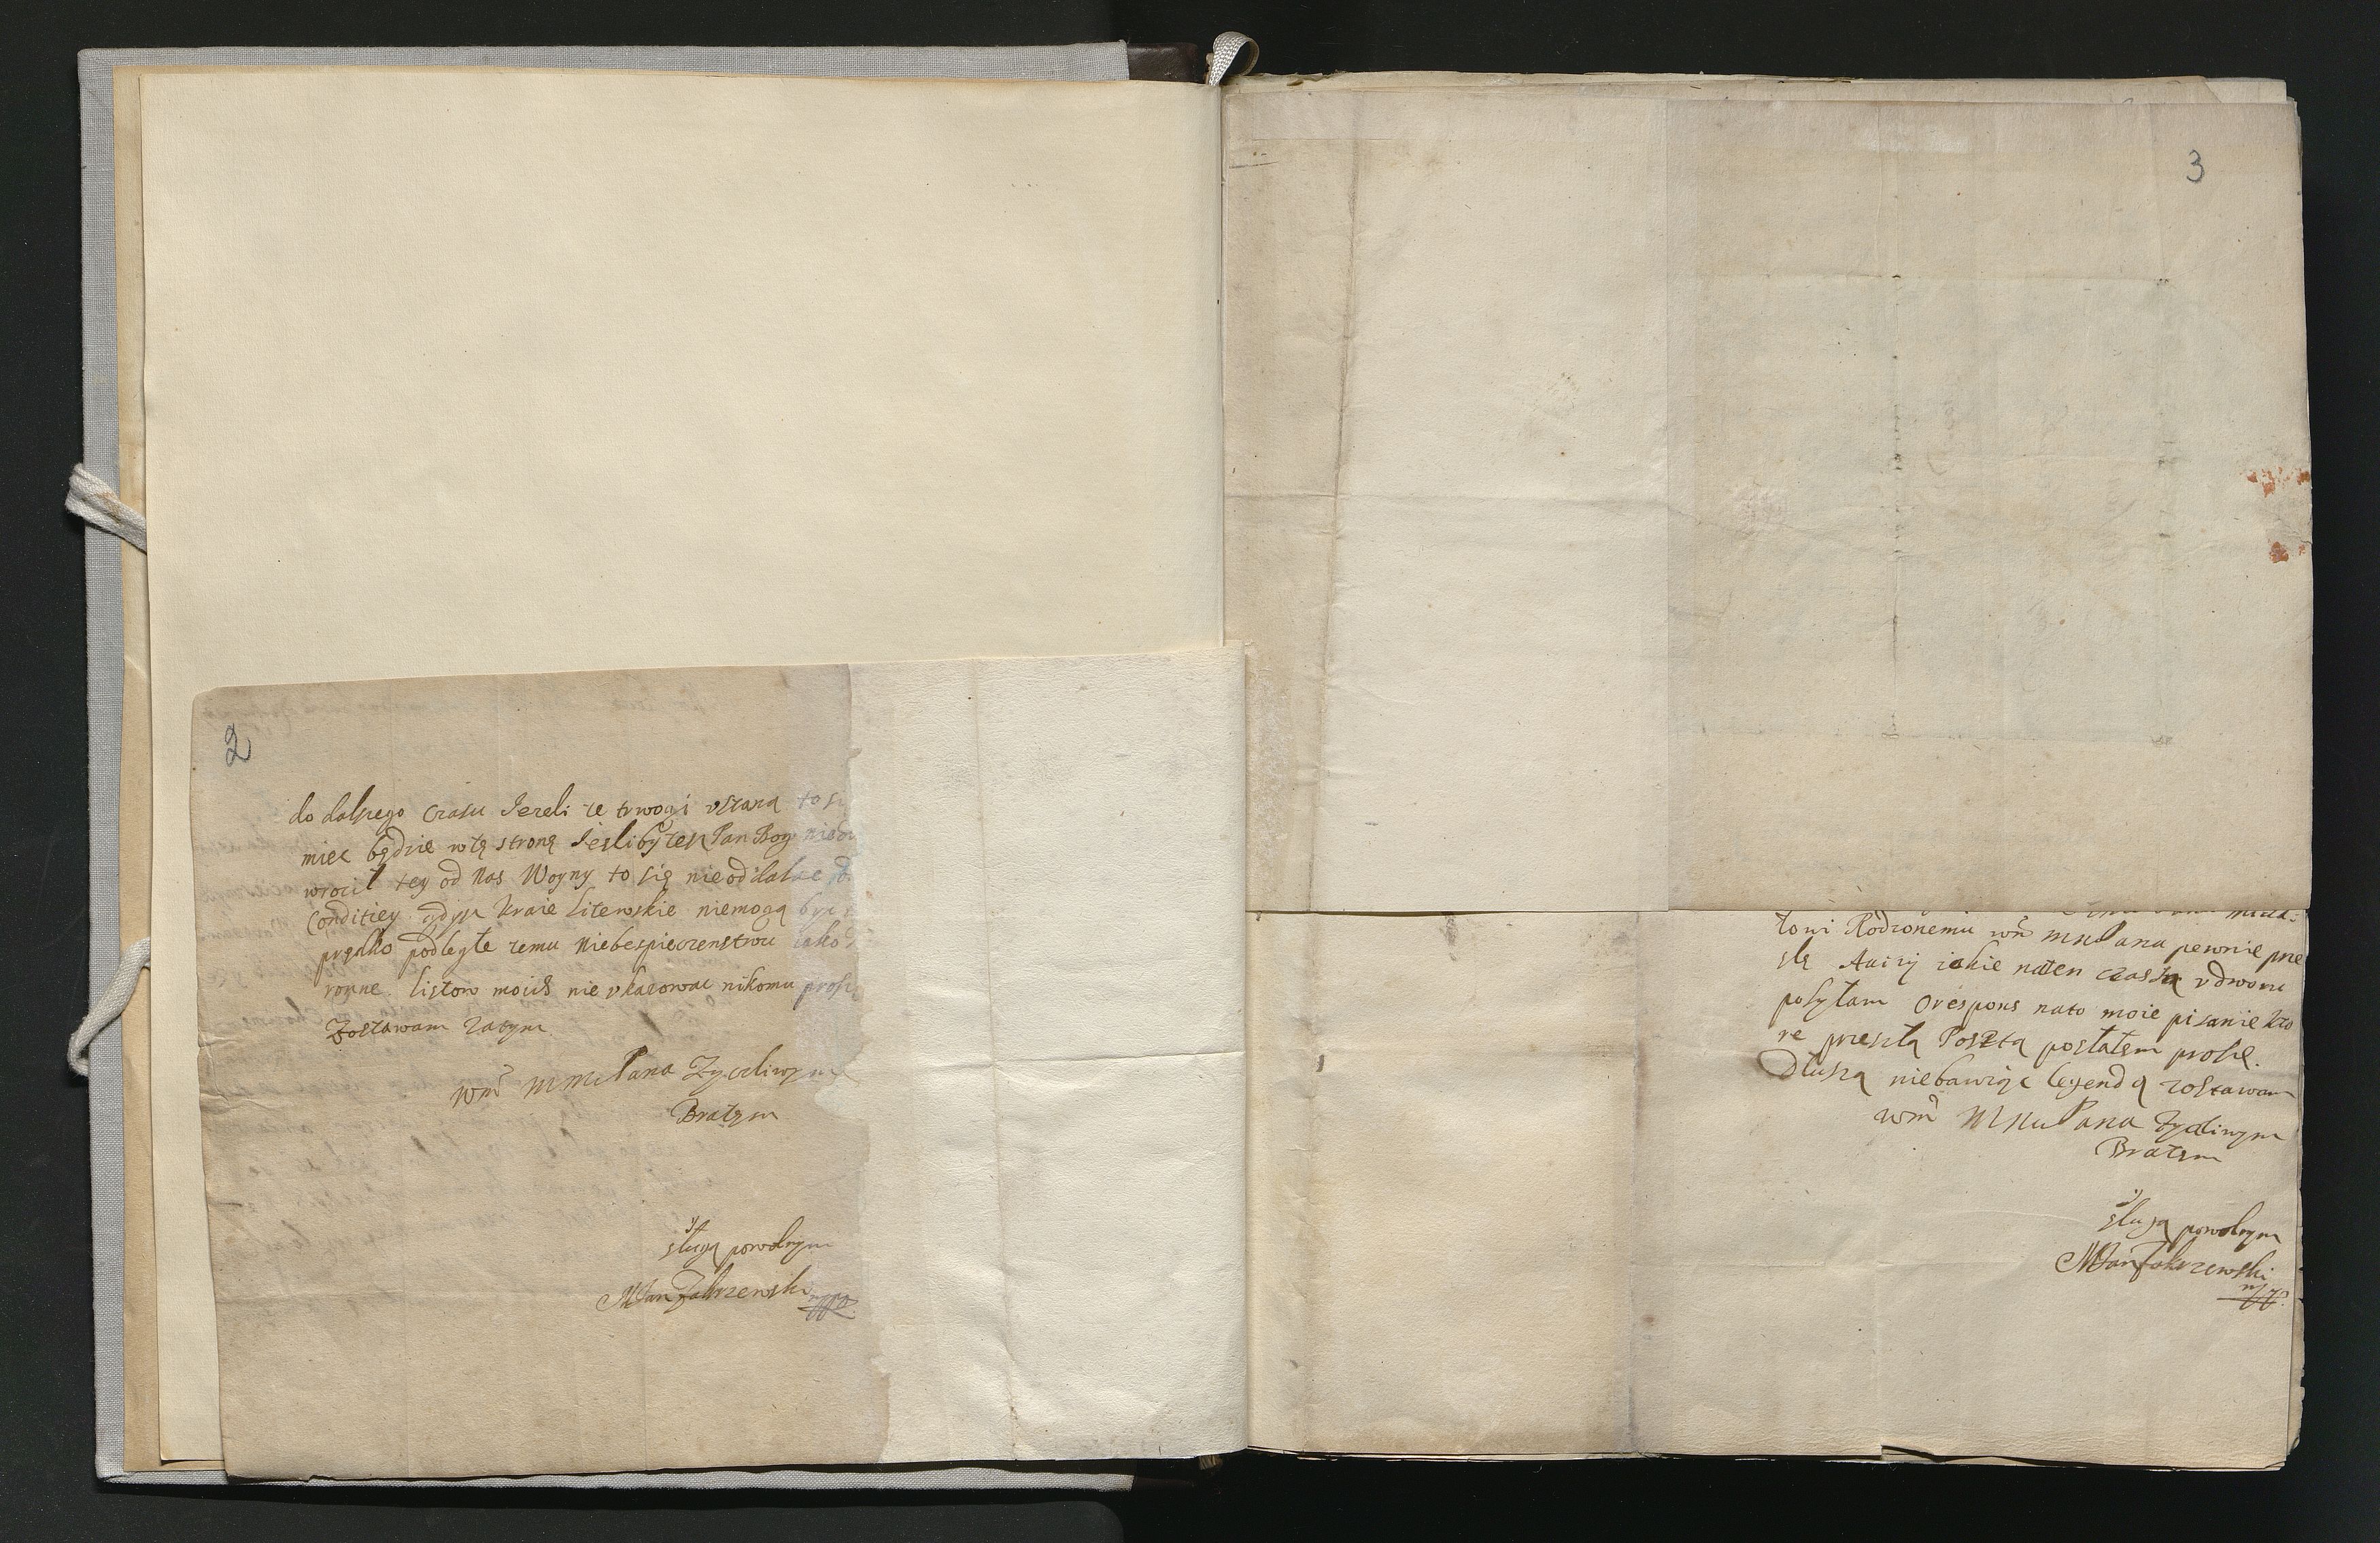 2
do dalszego czasu Jezeli te trwogi vstaną to się
miec będzie w tę stronę Jesliby ten Pan Bog nieod
wrocił tey od Nas Woyny to się nieoddalac
Conditiey gdysz kraie Litewskie niemogą byc
prętko podległe temu Niebespieczenstwu iako
ronne. listow moich nie vkazowac nikomu proszę
Zostawam zatym
Wm MMPana Zyczliwym
Bratem
y
sługą powolnym
MJan Zakrzewski mpp
3
towi Rodzonemu wm MMPana pewnie prze
slę Awizy iakie naten czas są v dworu
posyłam o respons nato moie pisanie kto
re przeszłą Posztą posłałem proszę.
Dłuszą niebawiąc legendą zostawam
wm MMPana Zyczliwym
Bratem
y
sługą powolnym
MJan Zakrzewski
mpp